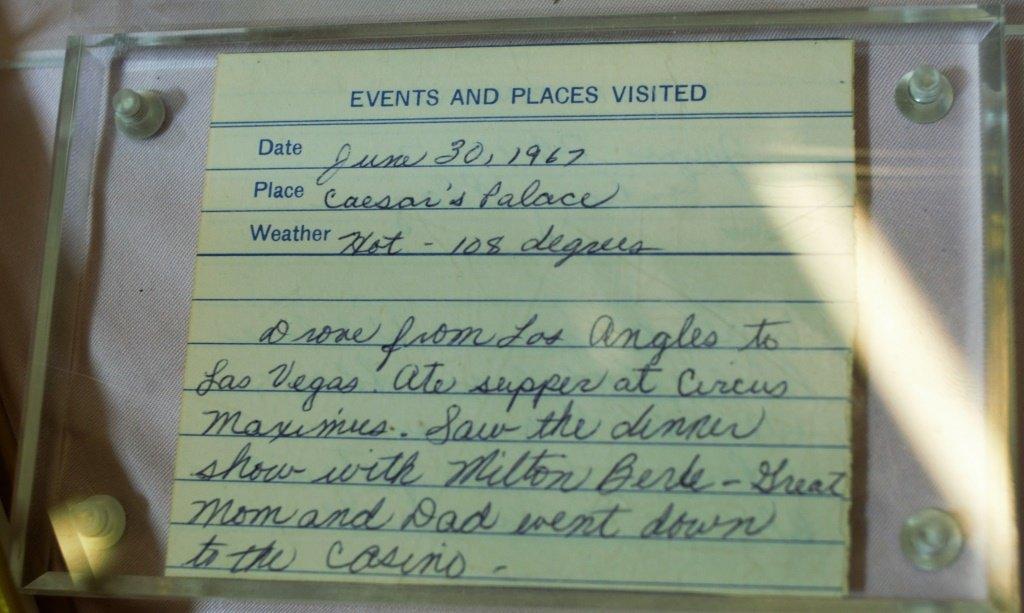 EVENTS AND PLACES VISITED
Date June 30, 1967
Place Caesar's Palace
Weather Hot - 108 degrees
Drove from Los Angles to
Las Vegas. Ate supper at Circus
Maximus. Saw the dinner
show with Milton Berle - Great
Mom and Dad went down
to the Casino -